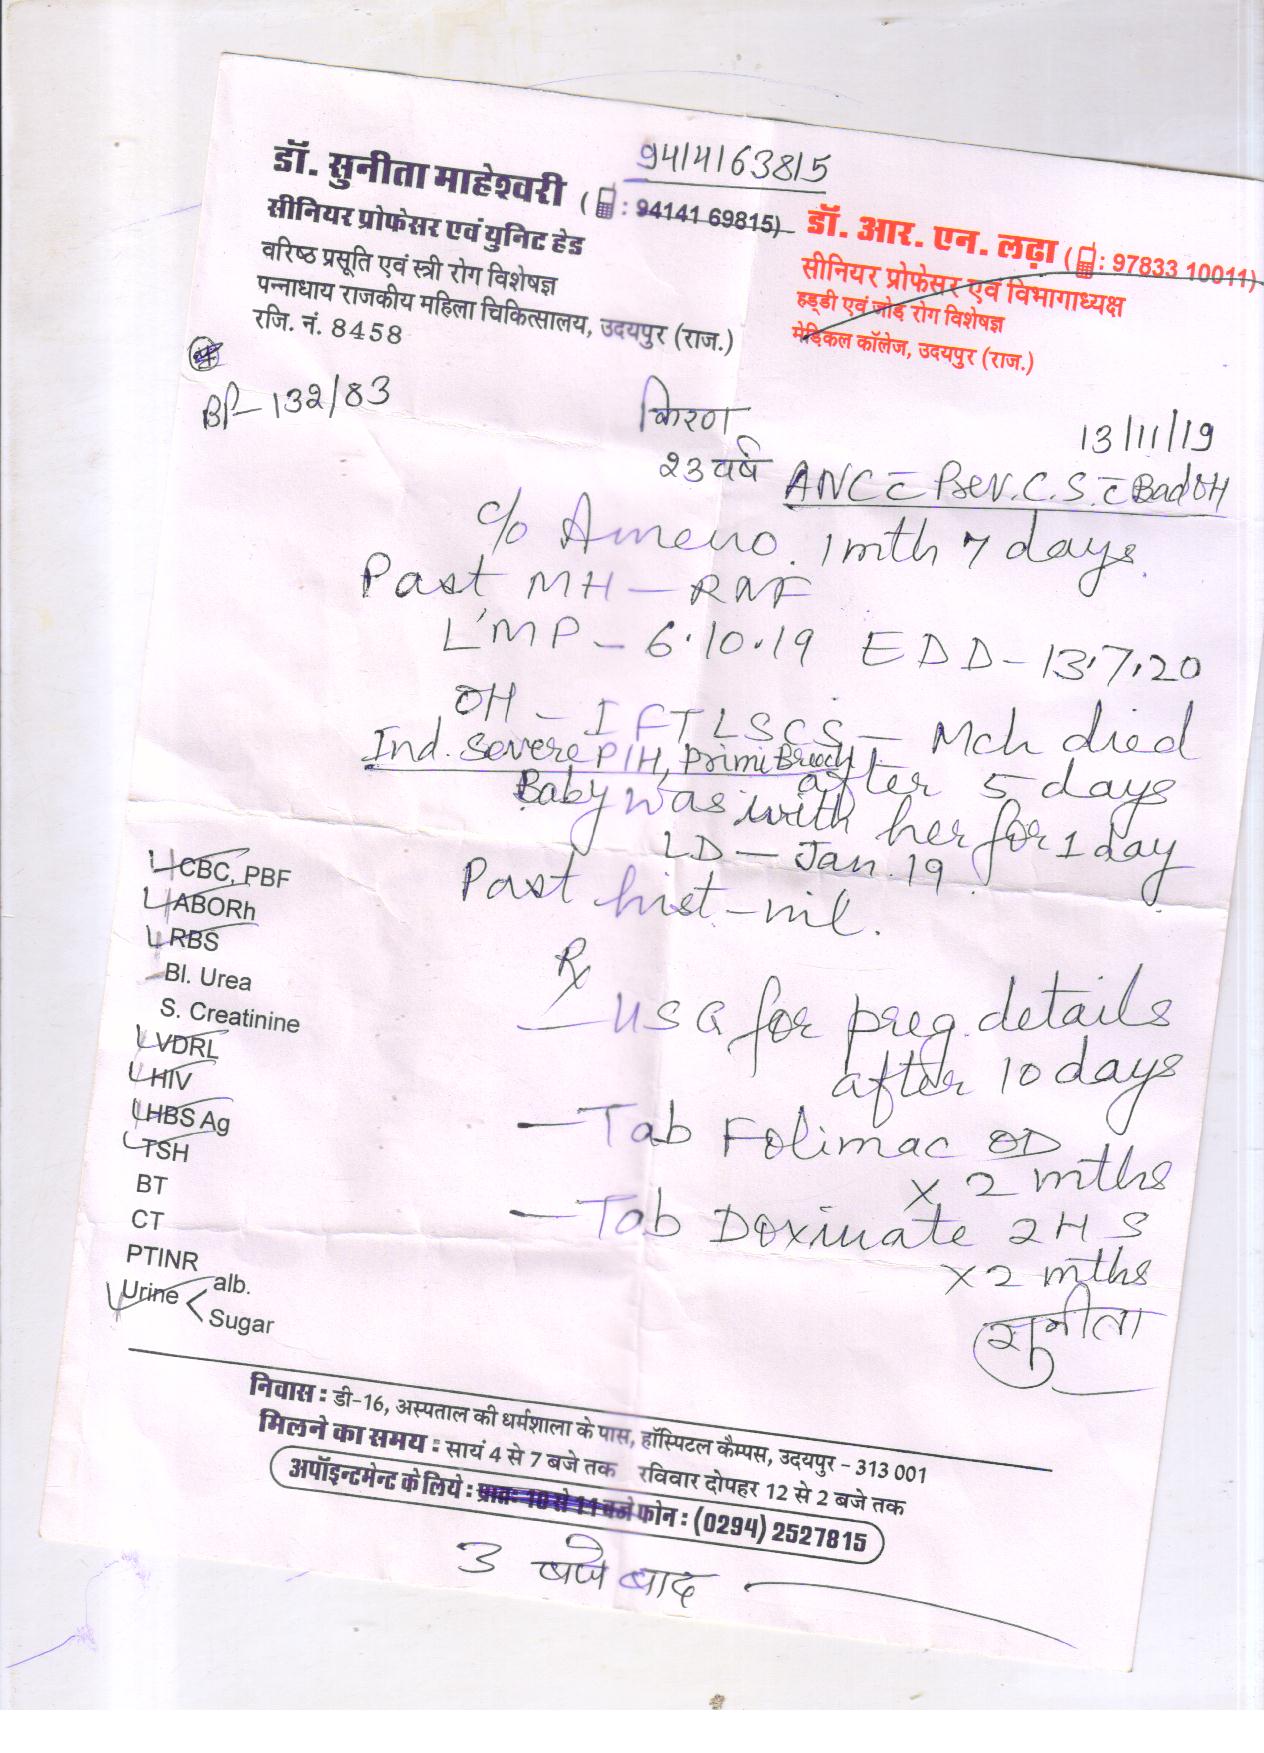 9414163815
डॉ. सुनीता माहेश्वरी (: 94141 69815)
सीनियर प्रोफेसर एवं युनिट हेड
वरिष्ठ प्रसूति एवं स्त्री रोग विशेषज्ञ
पन्नाधाय राजकीय महिला चिकित्सालय, उदयपुर (राज.)
रजि. नं. 8458
डॉ. आर. एन. लढ़ा (: 97833 10011)
सीनियर प्रोफेसर एवं विभागाध्यक्ष
हड्डी एवं जोड़ रोग विशेषज्ञ
मेडिकल कॉलेज, उदयपुर (राज.)
BP- 132/83
किरण
13/11/19
23 वर्ष ANC c̄ Prev. C.S. c̄ Bad OH
c/o Ameno. 1 mth 7 days.
Past MH - RNF
LMP - 6.10.19 EDD - 13.7.20
OH - I FTLSCS - Mch died
Ind. Severe PIH, Primi Breech after 5 days
Baby was with her for 1 day
LD - Jan. 19
Past hist - nil.
CBC, PBF
ABORh
RBS
Bl. Urea
S. Creatinine
VDRL
HIV
HBS Ag
TSH
BT
CT
PTINR
Urine < alb.
Sugar
Rx
- USG for preg. details
after 10 days
- Tab Folimac OD
x 2 mths
- Tab Doxinate 2 HS
x 2 mths
सुनीता
निवास : डी-16, अस्पताल की धर्मशाला के पास, हॉस्पिटल कैम्पस, उदयपुर - 313 001
मिलने का समय : सायं 4 से 7 बजे तक रविवार दोपहर 12 से 2 बजे तक
अपॉइन्टमेन्ट के लिये : प्रातः 10 से 11 बजे फोन : (0294) 2527815
3 बजे बाद